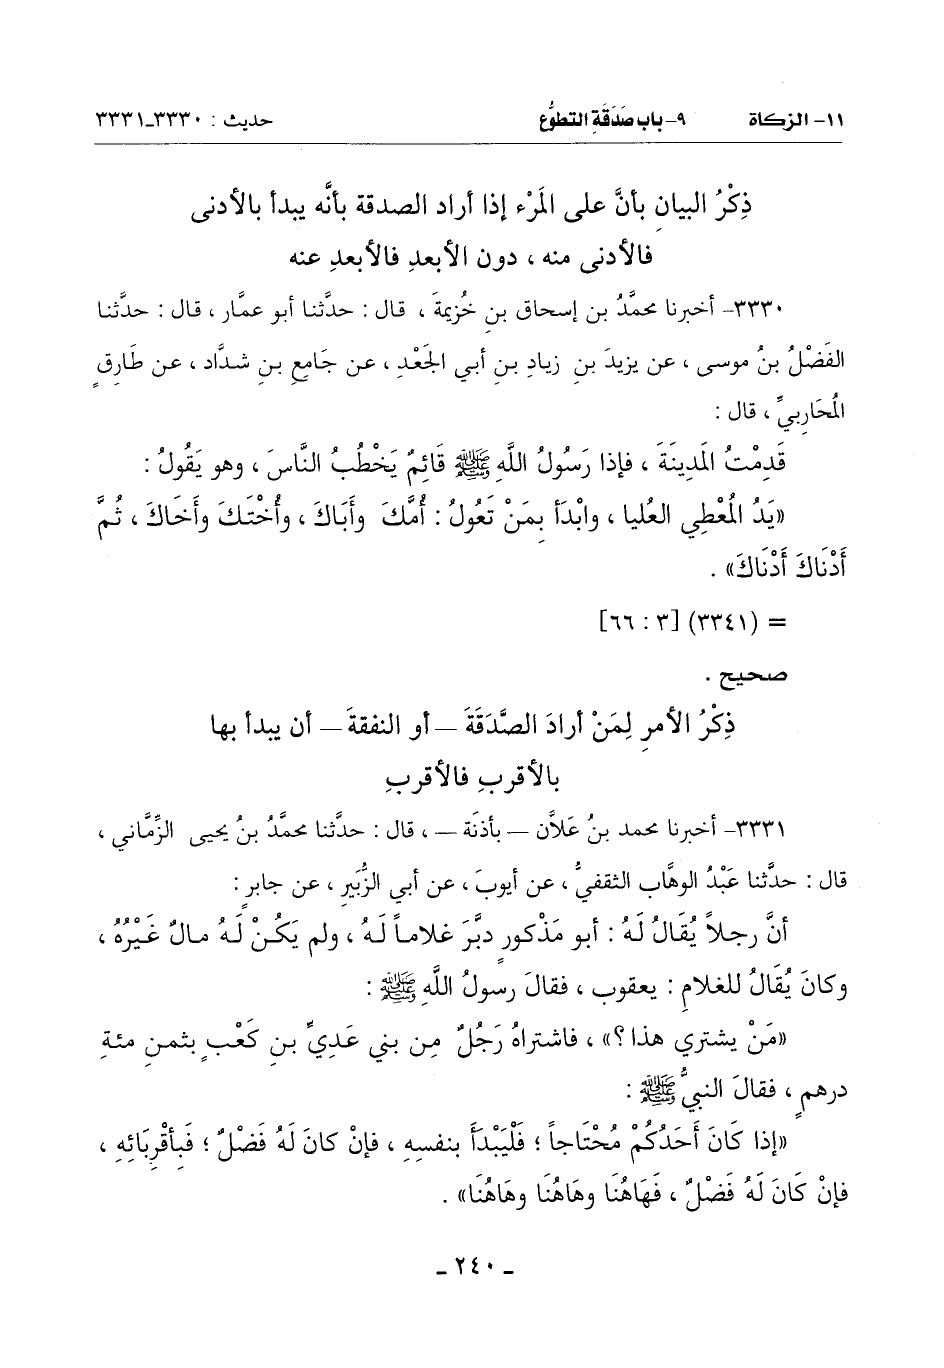 ١١- الزكاة ٩- باب صَدَقَةِ التطوُّع حديث : ٣٣٣٠-٣٣٣١
ذِكْرُ البيانِ بأنَّ على المَرْء إذا أراد الصدقة بأنَّه يبدأ بالأدنى
فالأدنى منه ، دون الأبعدِ فالأبعدِ عنه
٣٣٣٠- أخبرنا محمَّدُ بن إسحاق بنِ خُزيمةَ ، قال : حدَّثنا أبو عمَّار ، قال : حدَّثنا
الفَضْلُ بنُ موسى ، عن يزيدَ بنِ زيادِ بنِ أبي الجَعْدِ ، عن جَامعِ بنِ شدَّاد ، عن طَارِقٍ
المُحَاربيِّ ، قال :
قَدِمْتُ المَدِينَةَ ، فإذا رَسُولُ اللَّهِ ﷺ قائِمٌ يَخْطُبُ النَّاسَ ، وهو يَقُولُ :
«يَدُ المُعْطِي العُليا ، وابْدَأ بِمَنْ تَعُولُ : أُمَّكَ وأَبَاكَ ، وأُخْتَكَ وأَخَاكَ ، ثُمَّ
أَدْنَاكَ أَدْنَاكَ» .
= (٣٣٤١) [٣ : ٦٦]
صحيح .
ذِكْرُ الأمرِ لِمَنْ أرادَ الصَّدَقَةَ – أو النفقةَ – أن يبدأ بها
بالأقربِ فالأقربِ
٣٣٣١- أخبرنا محمد بنُ عَلاَّن – بأذنَة – ، قال : حدَّثنا محمَّدُ بنُ يحيى الزِّمَّاني ،
قال : حدَّثنا عَبْدُ الوهَّاب الثقفيُّ ، عن أيوبَ ، عن أبي الزُّبَيرِ ، عن جابرٍ :
أنَّ رجلاً يُقَالُ لَهُ : أبو مَذْكورٍ دبَّرَ غلاماً لَهُ ، ولم يَكُنْ لَهُ مالٌ غَيْرُهُ ،
وكانَ يُقَالُ للغلامِ : يعقوب ، فقالَ رسولُ اللَّهِ ﷺ :
«مَنْ يشتري هذا ؟» ، فاشتراهُ رَجُلٌ مِن بني عَديِّ بنِ كَعْبٍ بثمنِ مئةِ
درهمٍ ، فقالَ النبيُّ ﷺ :
«إذا كَانَ أَحَدُكُمْ مُحْتَاجاً ؛ فَلْيَبْدَأ بنفسِهِ ، فإنْ كانَ لَهُ فَضْلٌ ؛ فَبأقْرِبَائِهِ ،
فإنْ كَانَ لَهُ فَضْلٌ ، فَهَاهُنَا وهَاهُنَا وهَاهُنَا» .
- ٢٤٠ -